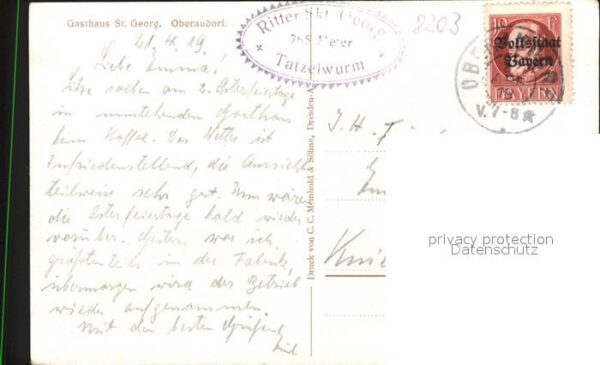 Gasthaus St. Georg, Oberaudorf.
Ritter Skt. Georg
765 Meter
Tatzelwurm
8203
10
Volksstaat
Bayern
V. 7-8
21.4.19
Liebe Emma!
am 2. Osterfeiertage
in
beim Kaffee. Das Wetter ist
zufriedenstellend, die Aussicht
teilweise sehr gut. Nun wären
die Osterfeiertage bald wieder
vorüber. Gestern war ich
größtenteils in der Fabrik,
übermorgen wird der Betrieb
wieder aufgenommen.
Mit den besten Grüßen
Druck von C. C. Meinhold & Söhne, Dresden-A
J. H.
privacy protection
Datenschutz